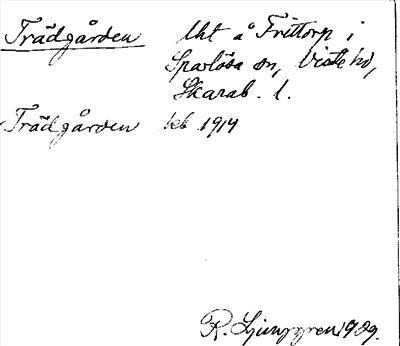 Trädgården lht å Frittorp i
Sparlösa sn, Viste hd,
Skarab. l.
Trädgården keb 1914
R. Ljunggren 1929.